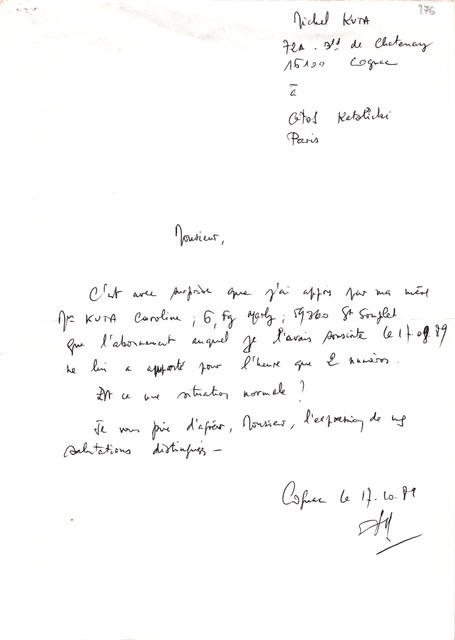 276
Michel KUTA
72A. Bld de Chatenay
16100 Cognac
à
Głos Katolicki
Paris
Monsieur,
C'est avec surprise que j'ai appris par ma mère
Mme KUTA Caroline ; 6, Fg Marly ; 59360 St Souplet
que l'abonnement auquel je l'avais souscrite le 17.08.89
ne lui a apporté pour l'heure que 2 numéros.
Est ce une situation normale ?
Je vous prie d'agréer, Monsieur, l'expression de mes
salutations distinguées -
Cognac le 17.10.89